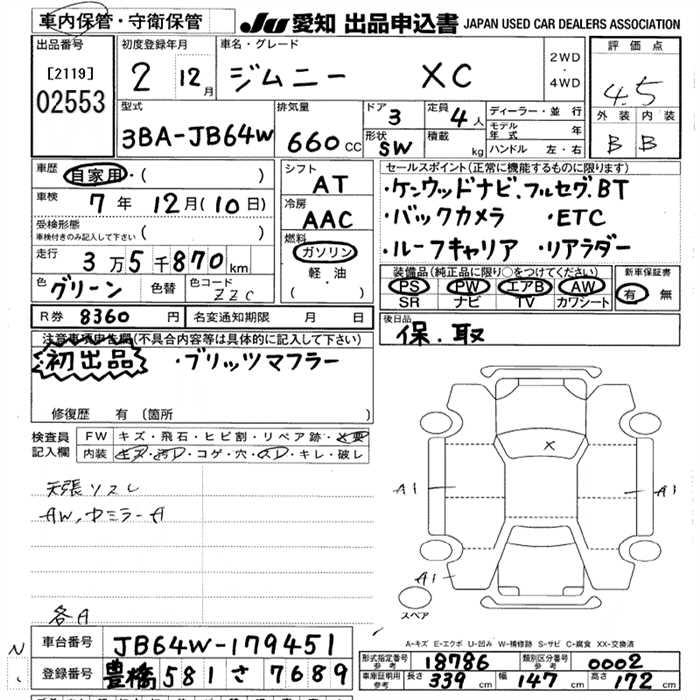 車内保管・守衛保管 JU 愛知 出品申込書 JAPAN USED CAR DEALERS ASSOCIATION
出品番号 [2119] 02553
初度登録年月 2 12月
車名・グレード ジムニー XC
2WD・4WD
評価点 4.5
外装 B 内装 B
型式 3BA-JB64W
排気量 660 CC
ドア 3 定員 4人
形状 SW 積載 kg
ディーラー・並行
モデル年式 年
ハンドル 左・右
車歴 自家用・( )
車検 7年 12月(10日)
受検形態 車検付きのみ記入して下さい ( )
走行 3万5千870km
色 グリーン 色替 色コード ZZC
シフト AT
冷房 AAC
燃料 ガソリン
軽・油
( )
セールスポイント(正常に機能するものに限ります)
・ケンウッドナビ、フルセグ、BT
・バックカメラ ・ETC
・ルーフキャリア ・リアラダー
装備品(純正品に限り○をつけてください)
PS PW エアB AW
SR ナビ TV カワシート
新車保証書 有 無
R券 8360円 名変通知期限 月 日
後日品 保.取
注意事項申告欄(不具合内容等は具体的に記入して下さい)
初出品 ・ブリッツマフラー
修復歴 有(箇所 )
検査員記入欄 FW キズ・飛石・ヒビ割・リペア跡・X要
内装 キズ・汚D・コゲ・穴・スD・キレ・破レ
天張ソスレ
AW,ドミラーA
各A
X
A1
A1
A1
スペア
A-キズ E-エクボ U-凹み W-補修跡 S-サビ C-腐食 XX-交換済
車台番号 JB64W-179451
登録番号 豊橋 581 さ 7689
形式指定番号 参考 18786 類別区分番号 参考 0002
車庫証明用 参考 長さ 339 cm 幅 147 cm 高さ 172 cm